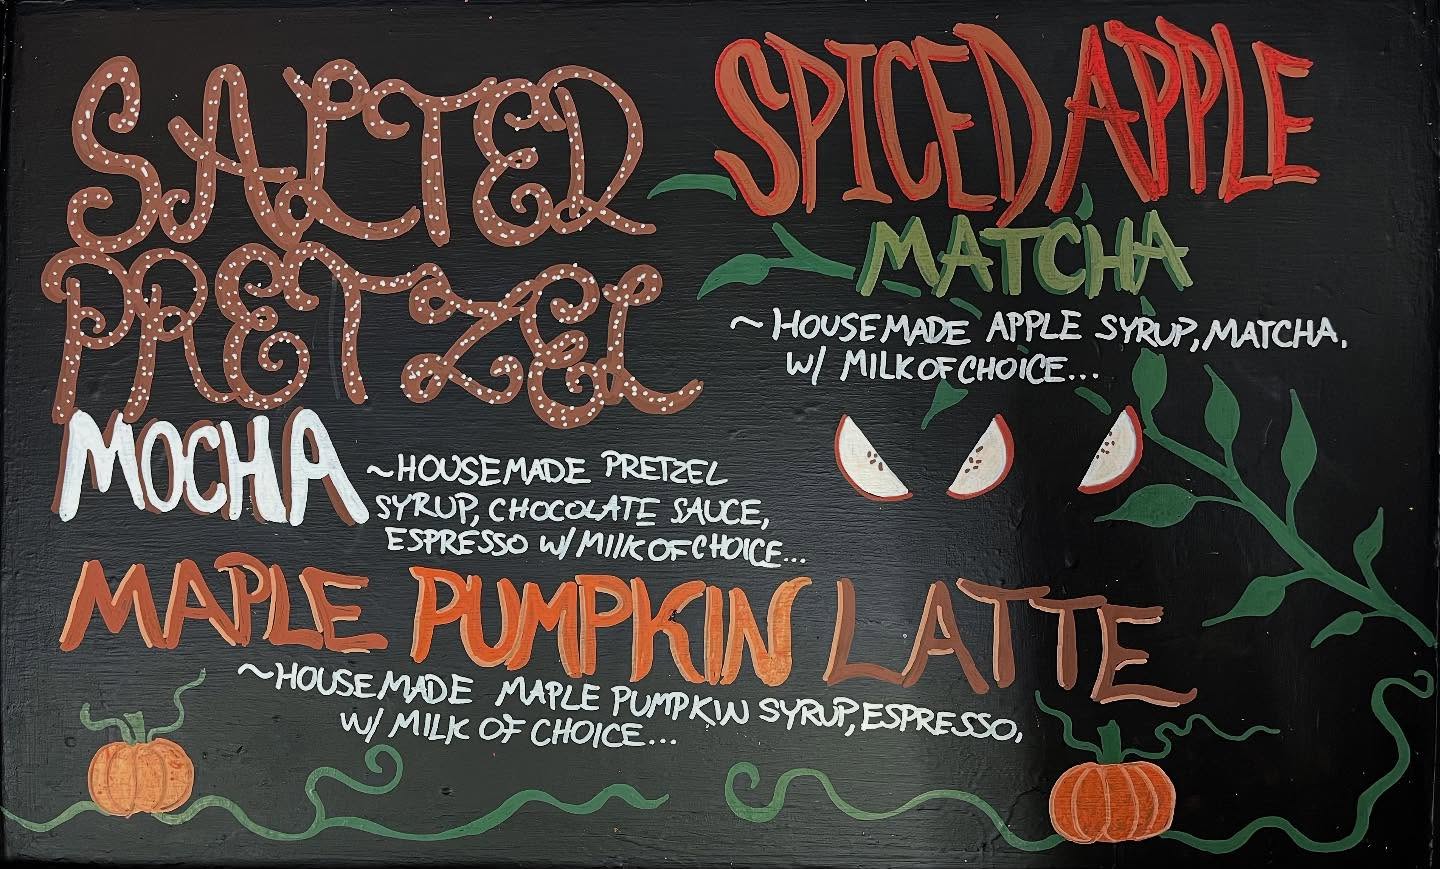 SALTED
PRETZEL
MOCHA
~HOUSEMADE PRETZEL
SYRUP, CHOCOLATE SAUCE,
ESPRESSO W/ MILK OF CHOICE...
SPICED APPLE
MATCHA
~HOUSEMADE APPLE SYRUP, MATCHA,
W/ MILK OF CHOICE...
MAPLE PUMPKIN LATTE
~HOUSEMADE MAPLE PUMPKIN SYRUP, ESPRESSO,
W/ MILK OF CHOICE...